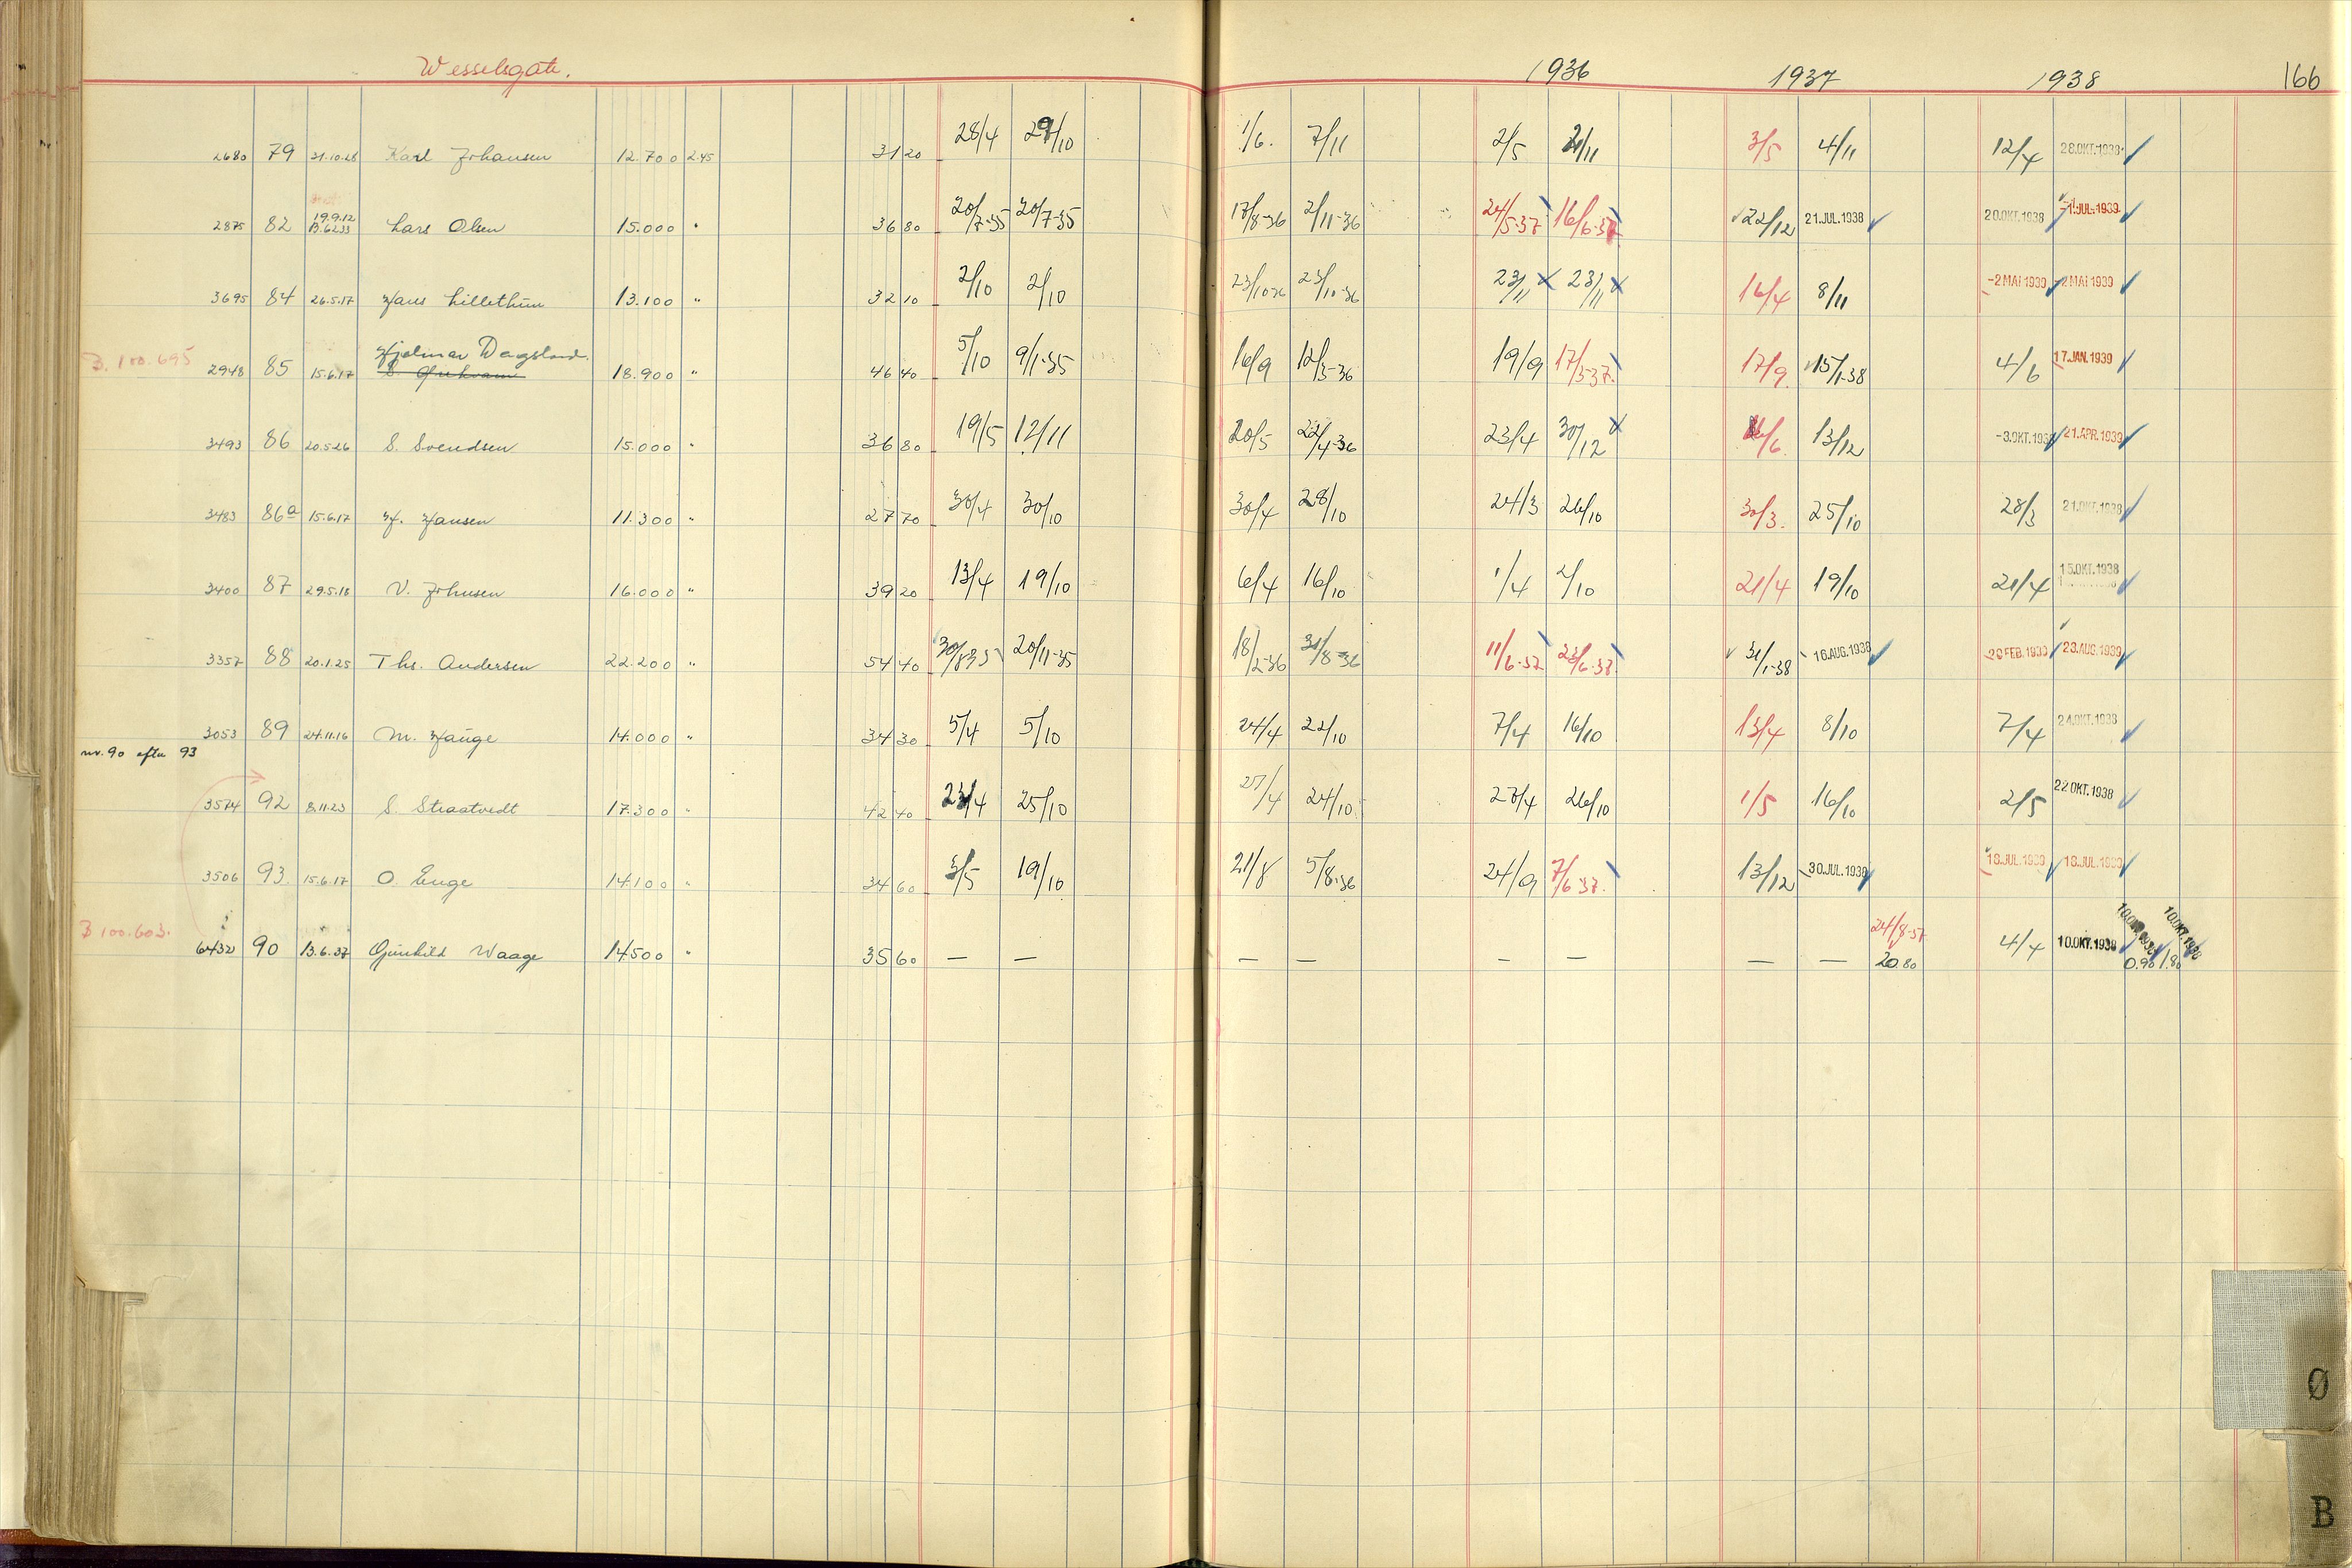 Wesselsgate. 1936 1937 1938 166
2680 79 21.10.28 Karl Johansen 12.700 2.45 31 20 28/4 29/10 1/6. 7/11 2/5 2/11 3/5 4/11 12/4 28.OKT.1938
2875 82 19.9.12 13.6.33 Lars Olsen 15.000 " 36 80 20/7-35 20/7-35 17/8-36 2/11-36 24/5-37 16/6-37 22/12 21.JUL.1938 20.OKT.1938 -1.JUL.1939
3695 84 26.5.17 Hans Lillethun 13.100 " 32 10 2/10 2/10 23/10-36 23/10-36 23/11 23/11 16/4 8/11 -2 MAI 1939 -2 MAI 1939
B. 100.695 2948 85 15.6.17 Hjalmar Dagsland. 18.900 " 46 40 5/10 9/1-35 16/9 12/3-36 19/9 17/3-37. 17/9. 15/1-38 4/6 17.JAN.1939
3493 86 20.5.26 S. Svendsen 15.000 " 36 80 19/5 12/11 20/5 22/4-36 23/4 30/12 /6. 13/12 -3.OKT.1938 21.APR.1939
3483 86a 15.6.17 H. Hansen 11.300 " 27 70 30/4 30/10 30/4 28/10 24/3 26/10 30/3. 25/10 28/3 21.OKT.1938
3400 87 29.5.18 V. Johnsen 16.000 " 39 20 13/4 19/10 6/4 16/10 1/4 2/10 21/4 19/10 21/4 15.OKT.1938
3357 88 20.1.25 Ths. Andersen 22.200 " 54 40 30/8-35 20/11-35 18/2-36 31/8-36 11/6-37 23/6-37. 31/1-38 16.AUG.1938 20 FEB.1939 23.AUG.1939
3053 89 24.11.16 M. Hauge 14.000 " 34 30 5/4 5/10 24/4 22/10 7/4 16/10 13/4 8/10 7/4 24.OKT.1938
nr. 90 efter 93
3574 92 8.11.23 S. Straatvedt 17.300 " 42 40 23/4 25/10 27/4 24/10 27/4 26/10 1/5 16/10 2/5 22 OKT.1938
3506 93 15.6.17 O. Enge 14.100 " 34 60 3/5 19/10 21/8 5/8-36 24/9 7/6-37. 13/12 30.JUL.1938 18.JUL.1939 18.JUL.1939
B 100.603. 6432 90 13.6.37 Gunhild Waage 14500 " 35 60 — — — — — — — — 24/8-37 20.80 4/4 10.OKT.1938 10.OKT.1938 0.90 10.OKT.1938 1.80
Ø
B